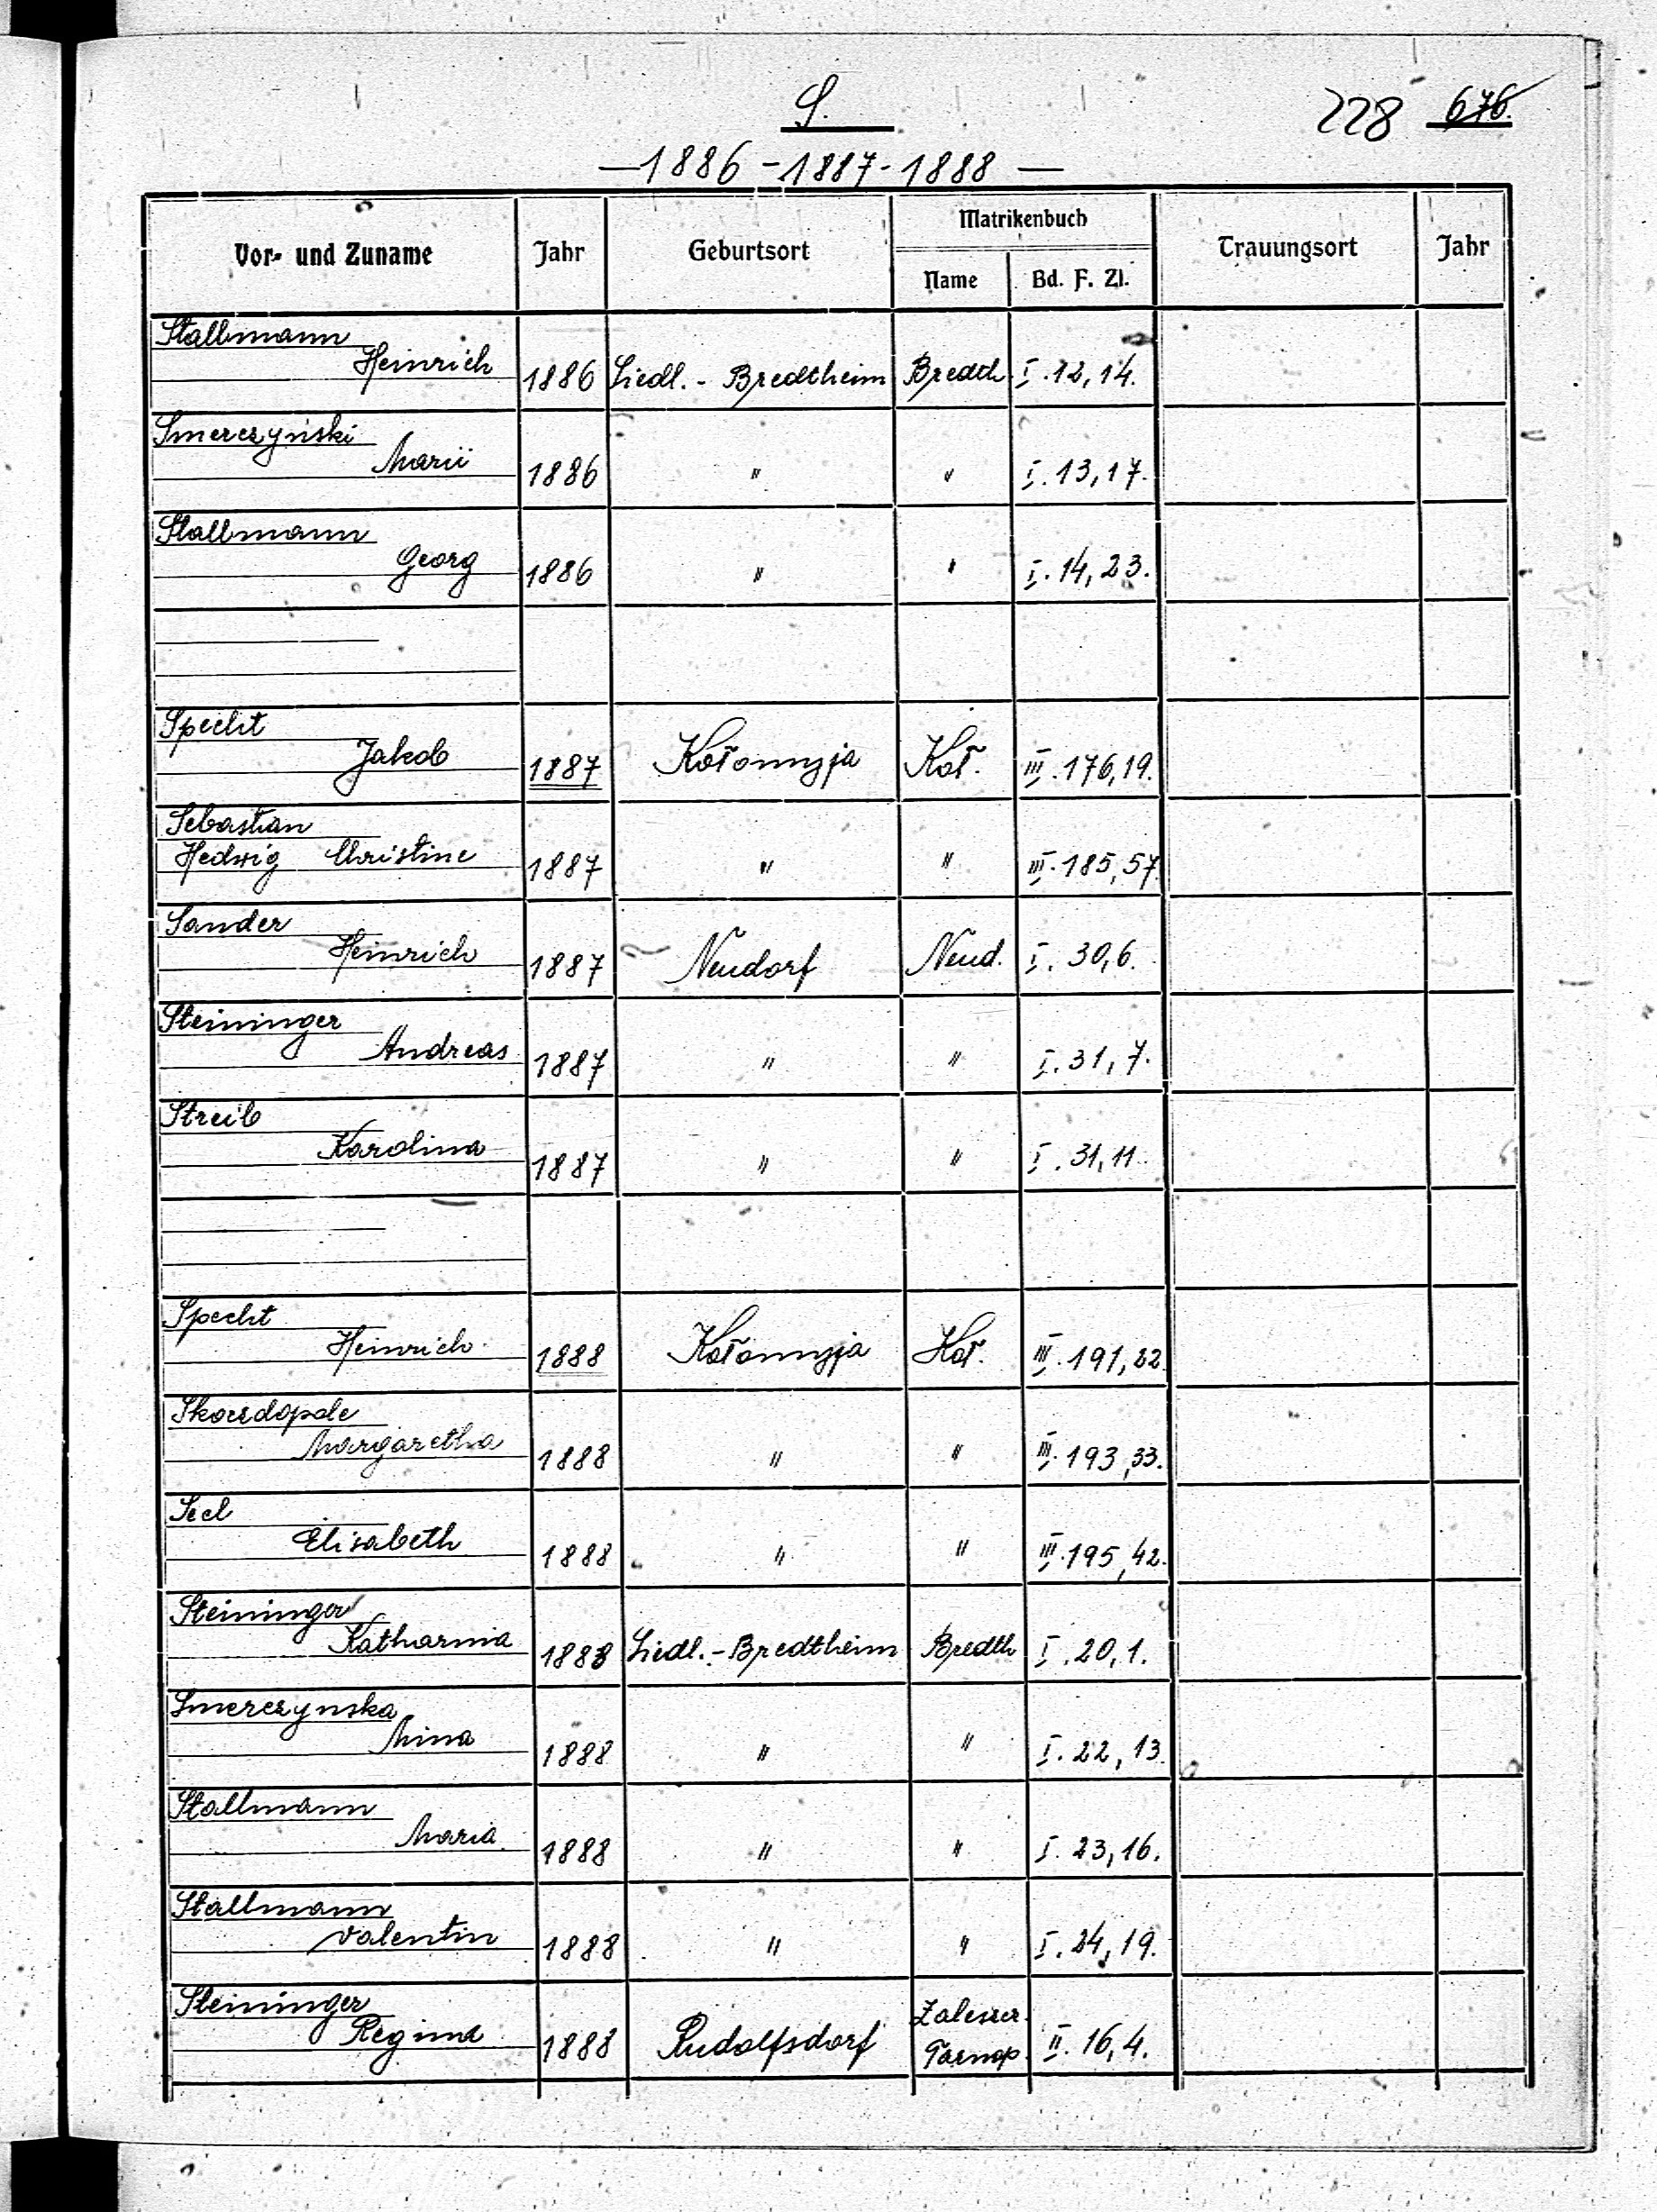 S.
228 676.
—1886-1887-1888—
Vor- und Zuname Jahr Geburtsort Matrikenbuch Trauungsort Jahr
Name Bd. F. Zl.
Stallmann
Heinrich 1886 Siedl.- Bredtheim Bredth I.12,14.
Smerczyński
Marii 1886 " " I.13,17.
Stallmann
Georg 1886 " " I.14,23.
Specht
Jakob 1887 Kołomyja Koł. III.176,19.
Sebastian
Hedwig Christine 1887 " " III.185,57.
Sander
Heinrich 1887 Neudorf Neud. I.30,6.
Steininger
Andreas 1887 " " I.31,7.
Streib
Karolina 1887 " " I.31,11.
Specht
Heinrich 1888 Kołomyja Koł. III.191,22.
Skorzdopole
Margaretha 1888 " " III.193,33.
Seel
Elisabeth 1888 " " III.195,42.
Steininger
Katharina 1888 Siedl.-Bredtheim Bredth I.20,1.
Smerczynska
Mina 1888 " " I.22,13.
Stallmann
Maria 1888 " " I.23,16.
Stallmann
Valentin 1888 " " I.24,19.
Steininger
Regina 1888 Rudolfsdorf Zaleszcz. Tarnop. II.16,4.